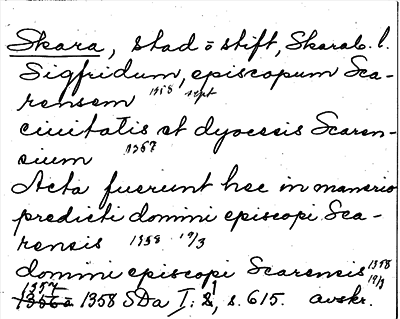 Skara, stad o stift, Skarab. l.
Sigfridum, episcopum Sca-
rensem 1358 sept
ciuitatis et dyocesis Scaren-
sium 1367
Acta fuerunt hec in manerio
predicti domini episcopi Sca-
rensis 1358 19/3
domini episcopi Scarensis 1358 19/3
1357
1358 SDa I: 1, s. 615. avskr.